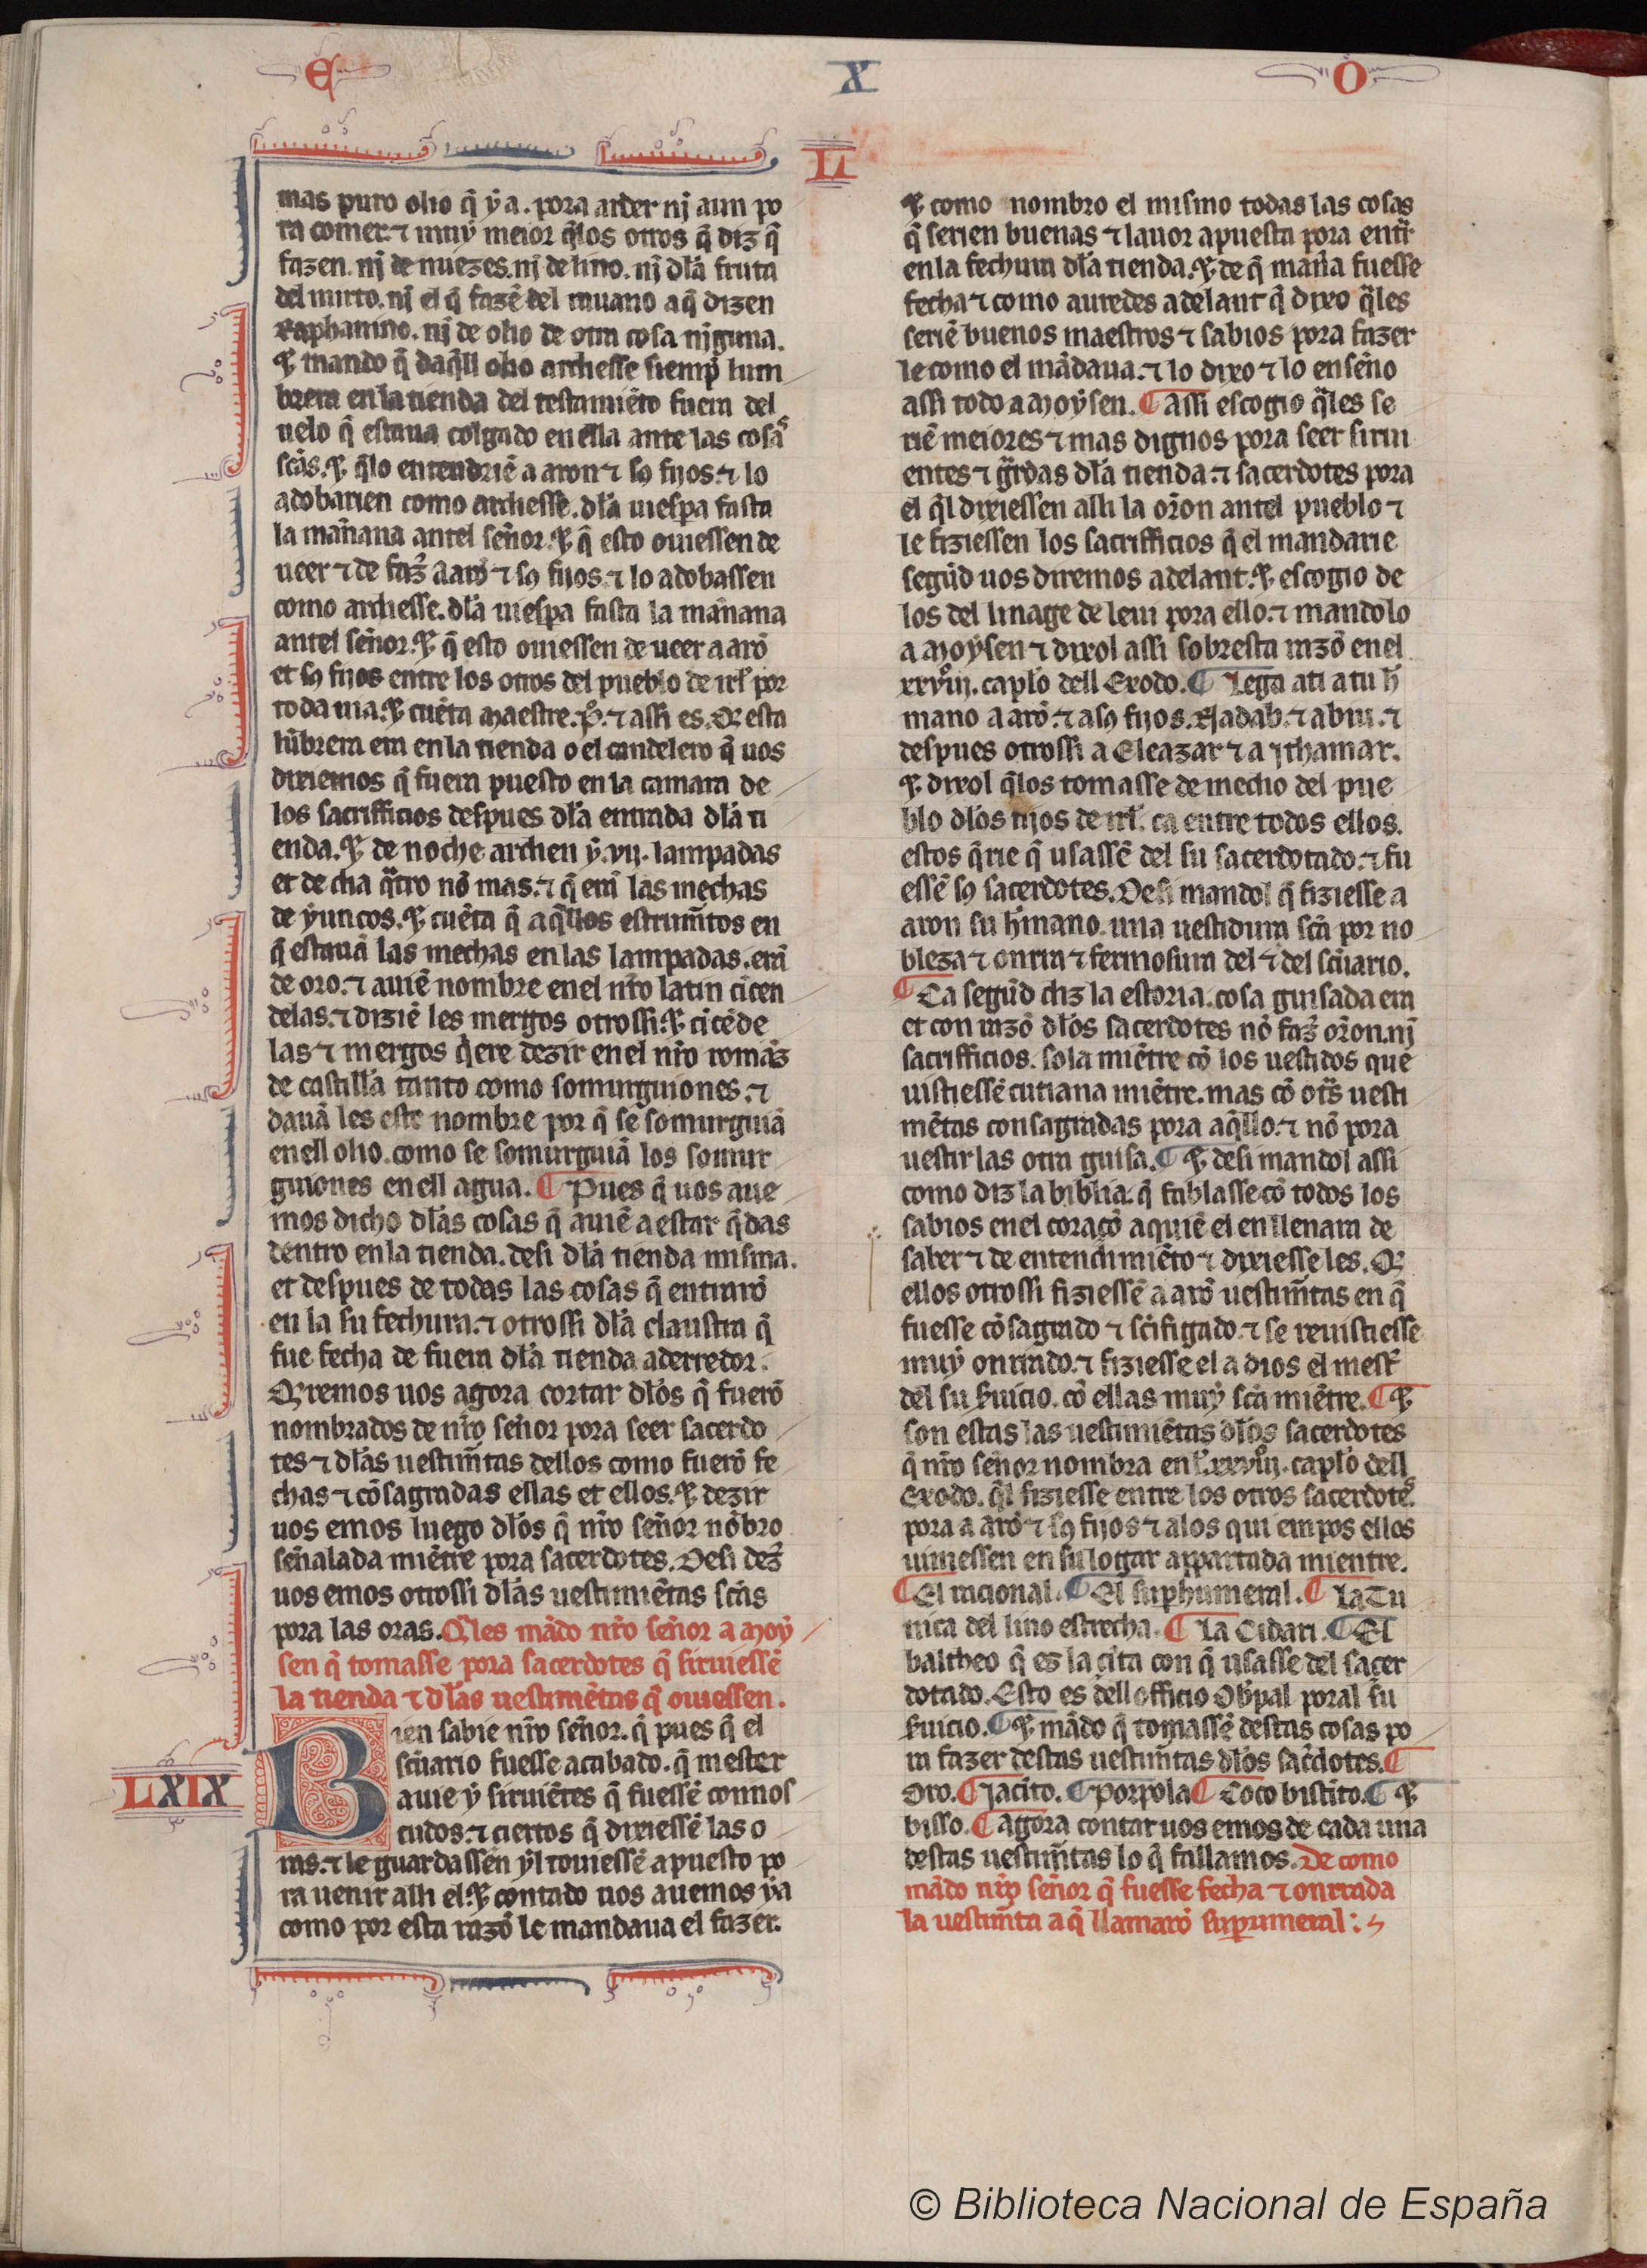 E X O
LI
mas puro olio q̃ ẏ a. pora arder nj aun po
ra comer. ⁊ muẏ meior q̃los otros q̃ diz q̃
fazen. nj de nuezes. nj de lino. nj dla fruta
del mirto. nj el q̃ fazẽ del rauano a q̃ dizen
Raphanino. nj de olio de otra cosa njguna.
⁊ mando q̃ daq̃ll olio ardiesse siemp̃ lum
brera en la tienda del testamiẽto fuera del
uelo q̃ estaua colgado en ella ante las cosas
sc̃as. ⁊ q̃lo entendriẽ a aron ⁊ sꝯ fijos. ⁊ lo
adobarien como ardiesse. dla uiespa fasta
la mañana antel señor. ⁊ q̃ esto ouiessen de
ueer ⁊ de faz̃ aarõ ⁊ sꝯ fijos. ⁊ lo adobassen
como ardiesse. dla uiespa fasta la mañana
antel señor. ⁊ q̃ esto ouiessen de ueer a arõ
et sꝯ fijos entre los otros del pueblo de irl̃ por
toda uia. ⁊ cuẽta maestre. P̃. ⁊ assi es. Q̃ esta
lũbrera era en la tienda o el candelero q̃ uos
dixiemos q̃ fuera puesto en la camara de
los sacrifficios despues dla entrada dla ti
enda. ⁊ de noche ardien ẏ .vij. lampadas
et de dia q̃tro nõ mas. ⁊ q̃ erã las mechas
de ẏuncos. ⁊ cuẽta q̃ aq̃llos estrum̃tos en
q̃ estauã las mechas en las lampadas. erã
de oro. ⁊ auiẽ nombre en el nr̃o latin cicen
delas. ⁊ diziẽ les mergos otrossi. ⁊ cicẽde
las ⁊ mergos q̃ere dezir en el nr̃o romãz
de castilla tanto como somurguiones. ⁊
dauã les este nombre por q̃ se somurguiã
en ell olio. como se somurguiã los somur
guiones en ell agua. ¶ Pues q̃ uos aue
mos dicho dlas cosas q̃ auiẽ a estar q̃das
dentro en la tienda. desi dla tienda misma.
et despues de todas las cosas q̃ entrarõ
en la su fechura. ⁊ otrossi dla claustra q̃
fue fecha de fuera dla tienda aderredor.
Q̃remos uos agora cortar dlos q̃ fuerõ
nombrados de nr̃o señor pora seer sacerdo
tes ⁊ dlas uestim̃tas dellos como fuerõ fe
chas ⁊ cõsagradas ellas et ellos. ⁊ dezir
uos emos luego dlos q̃ nr̃o señor nõbro
señalada miẽtre pora sacerdotes. Desi dez̃
uos emos otrossi dlas uestimiẽtas sc̃as
pora las oras. Q̃les mãdo nr̃o señor a moẏ
sen q̃ tomasse pora sacerdotes q̃ siruiessẽ
la tienda ⁊ dlas uestimẽtas q̃ ouiessen.
LXIX
Bien sabie nr̃o señor. q̃ pues q̃ el
sc̃uario fuesse acabado. q̃ mester
auie ẏ siruiẽtes q̃ fuessẽ connos
cudos. ⁊ ciertos q̃ dixiessẽ las o
ras. ⁊ le guardassen ẏl touiessẽ apuesto po
ra uenir alli el. ⁊ contado uos auemos ẏa
como por esta razõ le mandaua el fazer.
⁊ como nombro el mismo todas las cosas
q̃ serien buenas ⁊ lauor apuesta pora entr̃
en la fechura dla tienda. ⁊ de q̃ mañã fuesse
fecha ⁊ como auredes adelant q̃ dixo q̃les
seriẽ buenos maestros ⁊ sabios pora fazer
le como el mãdaua. ⁊ lo dixo ⁊ lo enseño
assi todo a moẏsen. ¶ assi escogio q̃les se
riẽ meiores ⁊ mas dignos pora seer sirui
entes ⁊ g̃rdas dla tienda. ⁊ sacerdotes pora
el q̃l dixiessen alli la or̃on antel pueblo ⁊
le fiziessen los sacrifficios q̃ el mandarie
segũd uos diremos adelant. ⁊ escogio de
los del linage de leui pora ello. ⁊ mandolo
a moẏsen ⁊ dixol assi sobresta razõ en el
xxviij. caplo dell Exodo. ¶ Lega ati a tu h̃
mano a arõ. ⁊ a sꝯ fijos. Nadab. ⁊ abiu. ⁊
despues otrossi a Eleazar ⁊ a ythamar.
⁊ dixol q̃los tomasse de medio del pue
blo dlos fijos de irl̃. ca entre todos ellos.
estos q̃rie q̃ usassẽ del su sacerdotado. ⁊ fu
essẽ sꝯ sacerdotes. Desi mandol q̃ fiziesse a
aron su h̃mano. una uestidura sc̃a por no
bleza ⁊ onrra ⁊ fermosura del ⁊ del sc̃uario.
¶ Ca segũd diz la estoria. cosa guisada era
et con razõ dlos sacerdotes nõ faz̃ or̃on. nj
sacrifficios. sola miẽtre cõ los uestidos que
uistiessẽ cutiana miẽtre. mas cõ otr̃s uesti
mẽtas consagradas pora aq̃llo. ⁊ nõ pora
uestir las otra guisa. ¶ ⁊ desi mandol assi
como diz la biblia. q̃ fablasse cõ todos los
sabios en el coraçõ a quiẽ el enllenara de
saber ⁊ de entendimiẽto ⁊ dixiesse les. Q̃
ellos otrossi fiziessẽ a arõ uestim̃tas en q̃
fuesse cõsagrado ⁊ sc̃ifigado. ⁊ se reuistiesse
muẏ onrrado. ⁊ fiziesse el a dios el mest̃
del su s̃uicio. cõ ellas muẏ sc̃a miẽtre. ¶ ⁊
son estas las uestimiẽtas dlos sacerdotes
q̃ nr̃o señor nombra en l. xxviij. caplo dell
Exodo. q̃l fiziesse entre los otros sacerdotes.
pora a arõ ⁊ sꝯ fijos ⁊ a los qui empos ellos
uiniessen en su logar appartada mientre.
¶ El racional. ¶ El suphumeral. ¶ La Tu
nica del lino estrecha. ¶ La Cidari. ¶ El
baltheo q̃ es la cĩta con q̃ usasse del sacer
dotado. Esto es dell officio Ob̃pal poral su
s̃uicio. ¶ ⁊ mãdo q̃ tomassẽ destas cosas po
ra fazer destas uestim̃tas dlos sac̃dotes. ¶
Oro. ¶ Jacito. ¶ Porpola ¶ Coco bistito. ¶ ⁊
bisso. ¶ agora contar uos emos de cada una
destas uestim̃tas lo q̃ fallamos. De como
mãdo nr̃o señor q̃ fuesse fecha ⁊ onrrada
la uestim̃ta a q̃ llamarõ suprumeral :
© Biblioteca Nacional de España